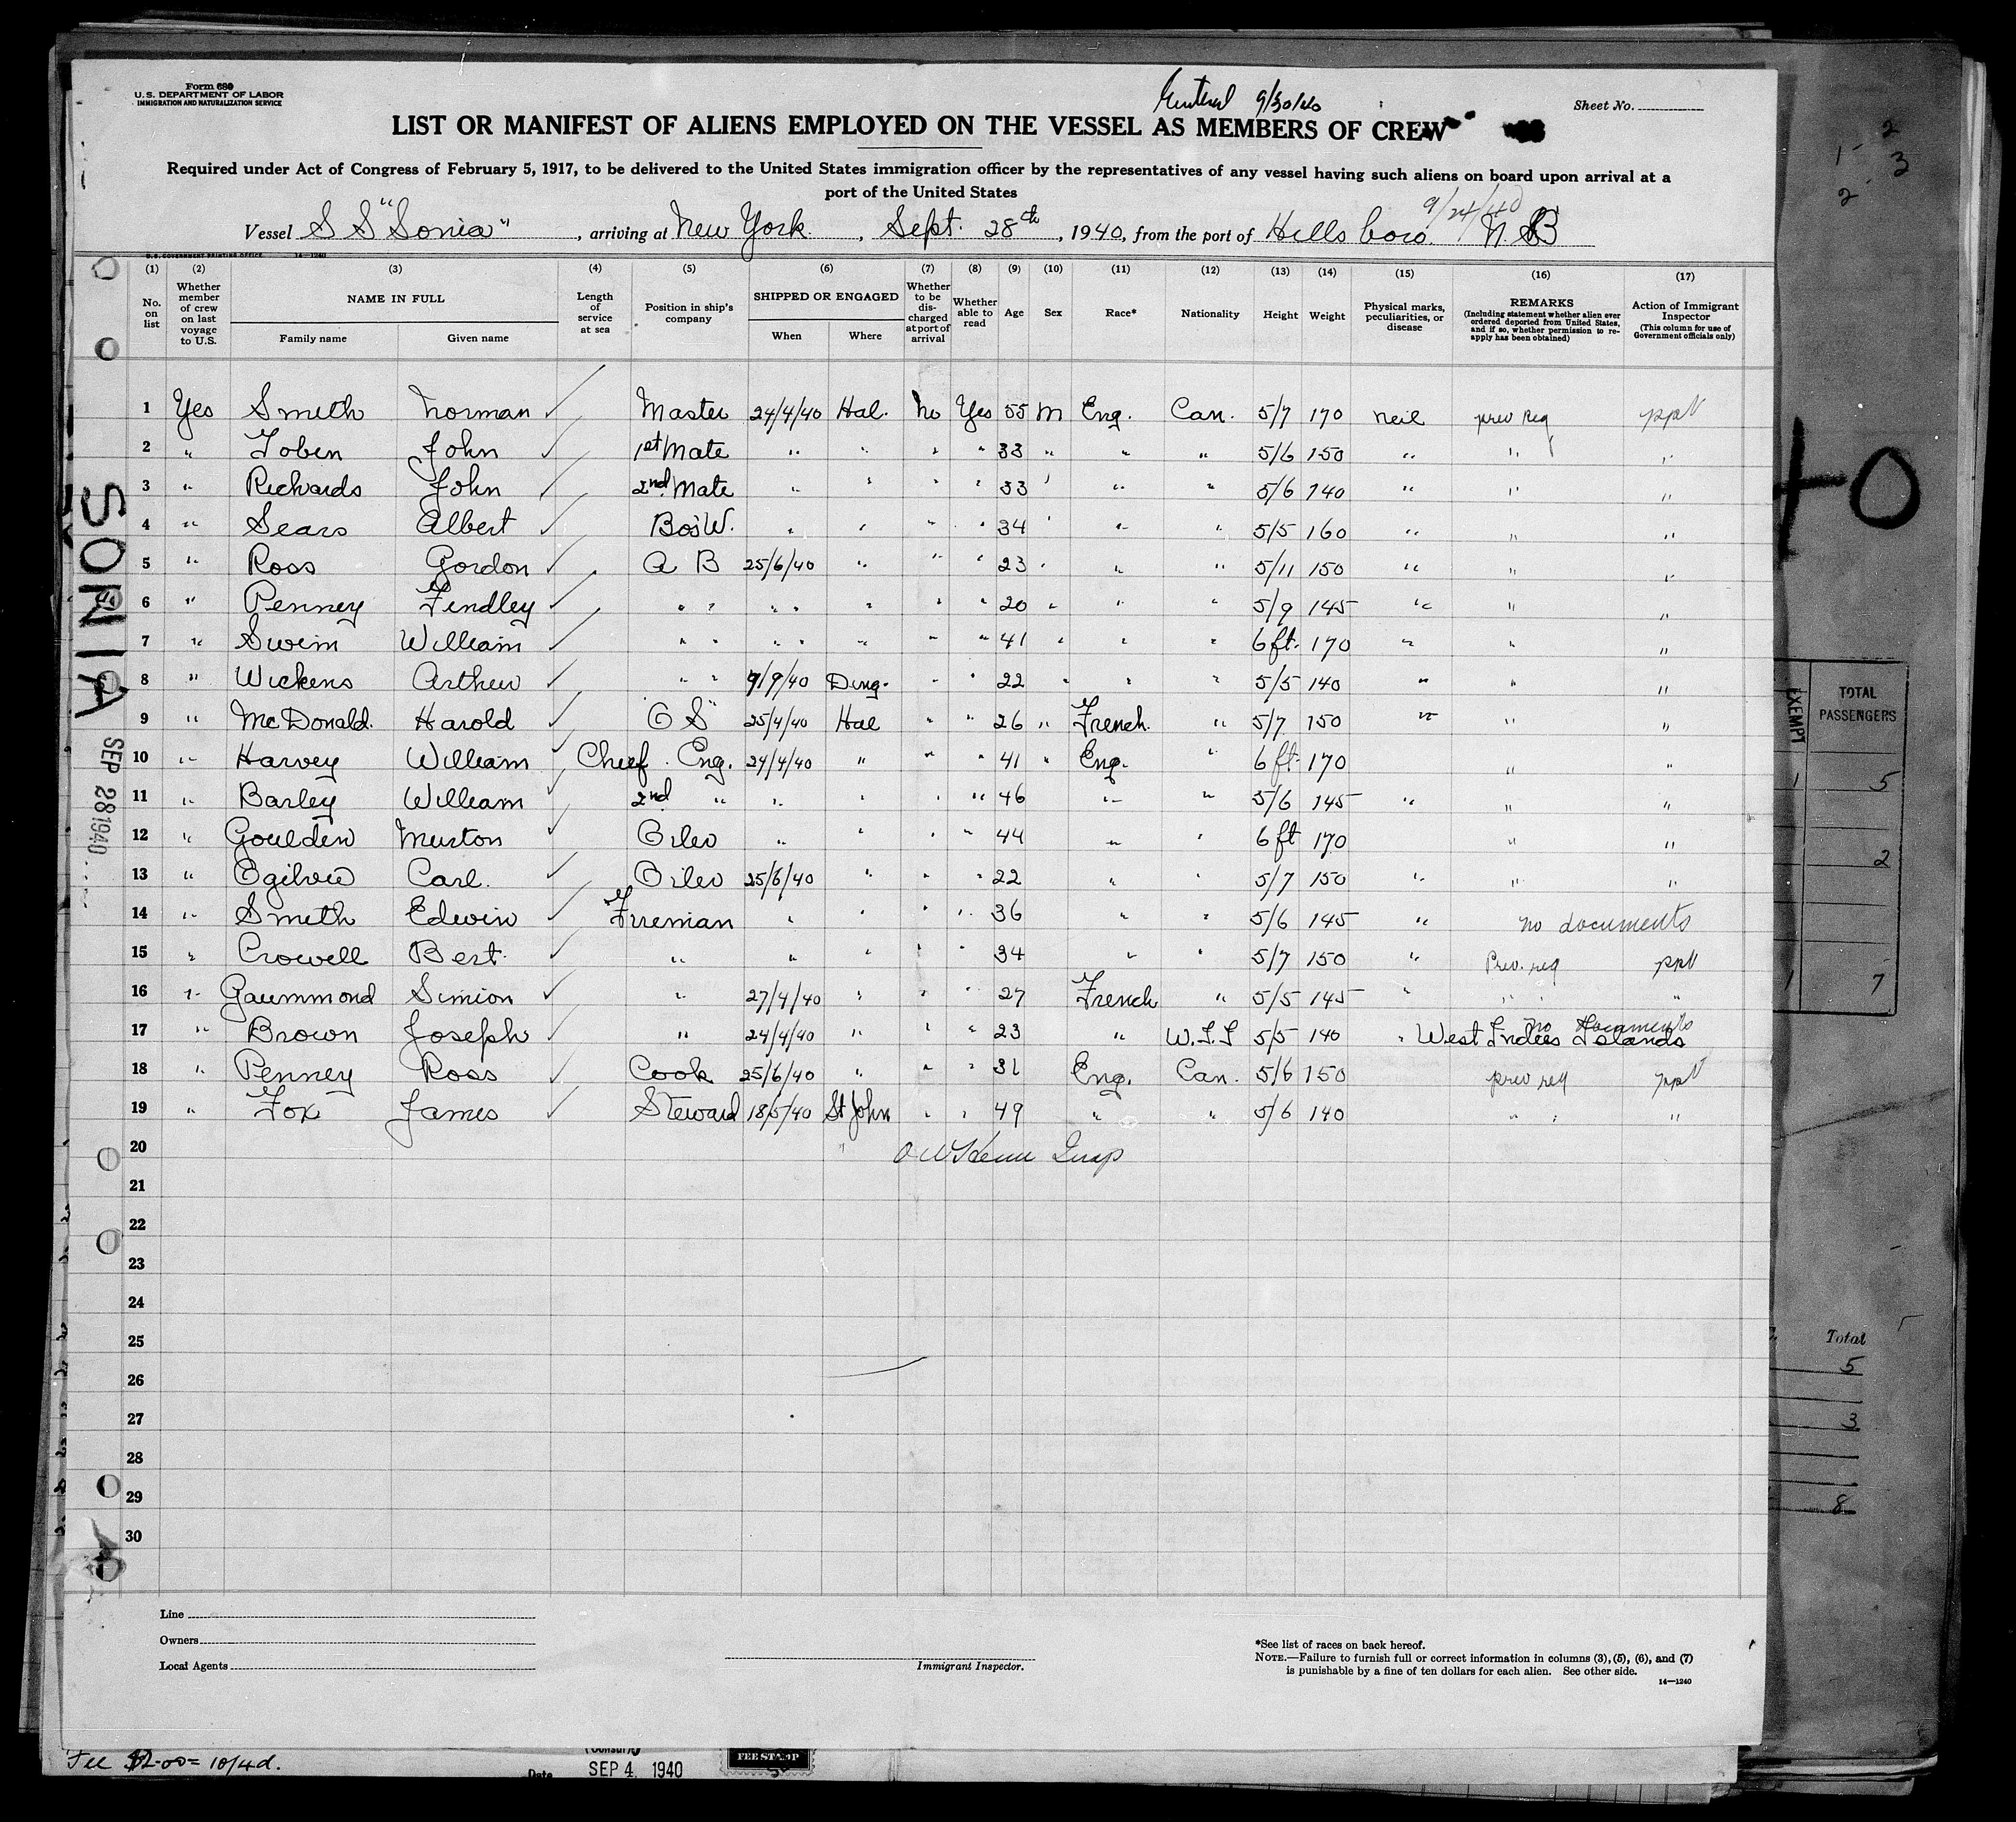 Form 689
U. S. DEPARTMENT OF LABOR
IMMIGRATION AND NATURALIZATION SERVICE
Entered 9/30/40
Sheet No.
LIST OR MANIFEST OF ALIENS EMPLOYED ON THE VESSEL AS MEMBERS OF CREW
Required under Act of Congress of February 5, 1917, to be delivered to the United States immigration officer by the representatives of any vessel having such aliens on board upon arrival at a
port of the United States
9/24/40
Vessel S S "Sonia", arriving at New York, Sept. 28th, 1940, from the port of Hillsboro. N. B
U. S. GOVERNMENT PRINTING OFFICE 14—1240
(1) (2) (3) (4) (5) (6) (7) (8) (9) (10) (11) (12) (13) (14) (15) (16) (17)
No. on list
Whether member of crew on last voyage to U.S.
NAME IN FULL
Family name Given name
Length of service at sea
Position in ship's company
SHIPPED OR ENGAGED
When Where
Whether to be discharged at port of arrival
Whether able to read
Age
Sex
Race*
Nationality
Height
Weight
Physical marks, peculiarities, or disease
REMARKS
(Including statement whether alien ever ordered deported from United States, and if so, whether permission to reapply has been obtained)
Action of Immigrant Inspector
(This column for use of Government officials only)
1 Yes Smith Norman ✓ Master 24/4/40 Hal. No Yes 55 M Eng. Can. 5/7 170 Neil prev reg ppt
2 " Tobin John ✓ 1st Mate " " " " 33 " " " 5/6 150 " " "
3 " Richards John ✓ 2nd Mate " " " " 33 " " " 5/6 140 " " "
4 " Sears Albert ✓ Bos'W. " " " " 34 " " " 5/5 160 " " "
5 " Ross Gordon ✓ A B 25/6/40 " " " 23 " " " 5/11 150 " " "
6 " Penney Findley ✓ " " " " " " " 20 " " " 5/9 145 " " "
7 " Swim William ✓ " " " " " " " 41 " " " 6 ft. 170 " " "
8 " Wickens Arthur ✓ " " 9/9/40 Ding. " " 22 " " " 5/5 140 " " "
9 " McDonald. Harold ✓ O S" 25/4/40 Hal " " 26 " French " 5/7 150 " " "
10 " Harvey William ✓ Chief Eng. 24/4/40 " " " 41 " Eng. " 6 ft. 170 " "
11 " Barley William ✓ 2nd " " " " " 46 " " 5/6 145 " " "
12 " Goulden Murton ✓ Oiler " " " " 44 " " 6 ft 170 " "
13 " Ogilvie Carl. ✓ Oiler 25/6/40 " " " 22 " 5/7 150 " " "
14 " Smith Edwin ✓ Fireman " " " " 36 " " 5/6 145 " no documents
15 " Crowell Bert. ✓ " " " " 34 " " 5/7 150 " Prev. reg ppt
16 " Gaummond Simion ✓ " 27/4/40 " " " 27 French " 5/5 145 " " " "
17 " Brown Joseph ✓ " 24/4/40 " " " 23 " W.I.I 5/5 140 " West Indies Islands no documents
18 " Penney Ross ✓ Cook 25/6/40 " " " 31 Eng. Can. 5/6 150 prev reg ppt
19 " Fox James ✓ Steward 18/5/40 St John " " 49 " " 5/6 140 " " "
20
21
22
23
24
25
26
27
28
29
30
SONIA
SEP 28 1940
Line
Owners
Local Agents
Immigrant Inspector.
*See list of races on back hereof.
NOTE.—Failure to furnish full or correct information in columns (3), (5), (6), and (7)
is punishable by a fine of ten dollars for each alien. See other side.
14—1240
Fee $2.00 = 10/4d.
(Consul)
Date SEP 4 1940
FEE STAMP
2
1- 3
2-
40
EXEMPT
TOTAL PASSENGERS
1 5
2
1 7
Total
5
3
8